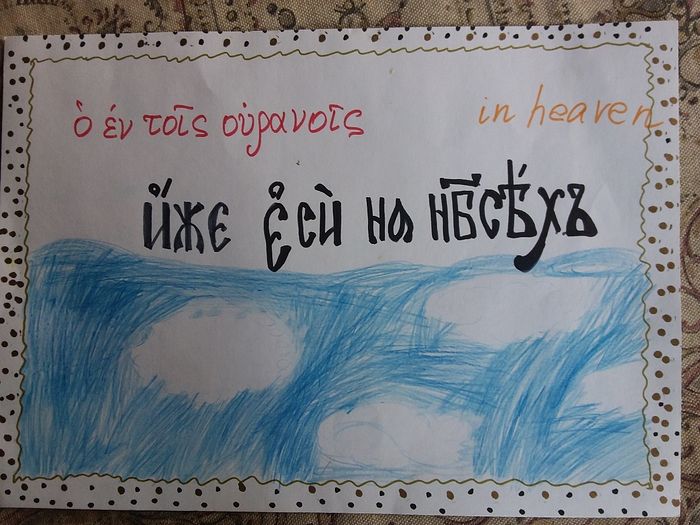 ὁ ἐν τοῖς οὐρανοῖς
in heaven
и҆́же є҆сѝ на нб҃сѣ́хъ